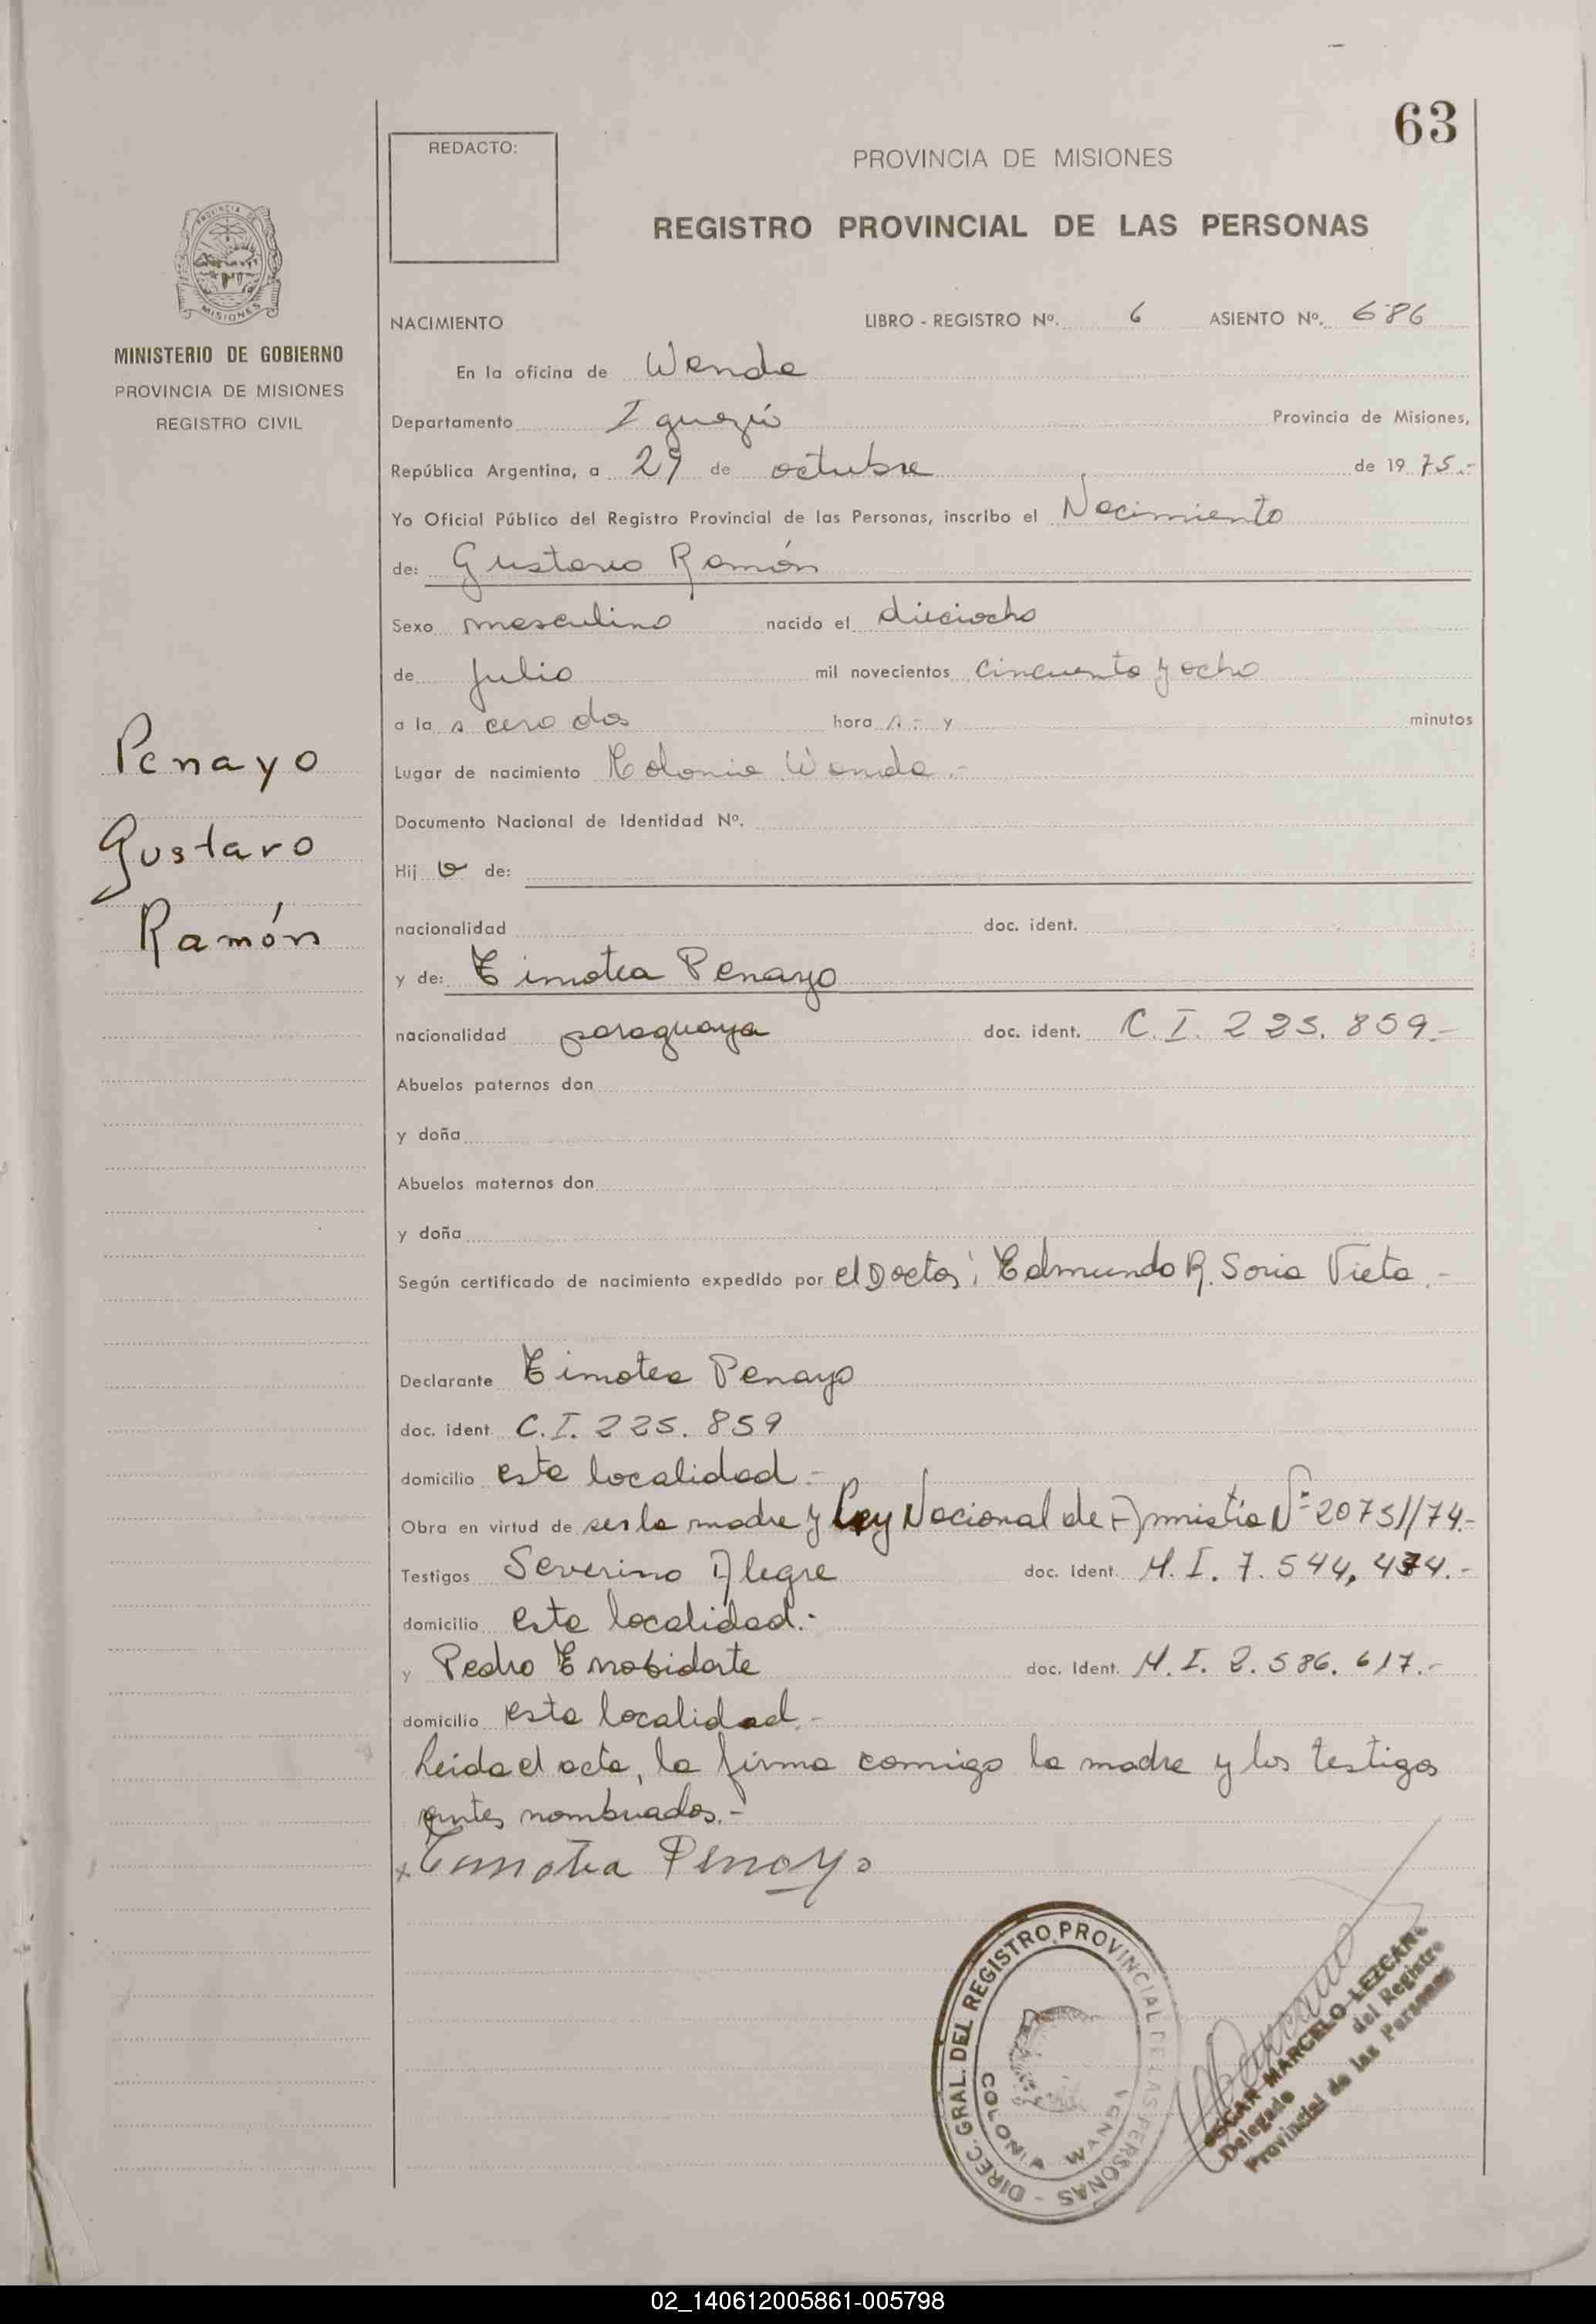 63
REDACTO:
PROVINCIA DE MISIONES
REGISTRO PROVINCIAL DE LAS PERSONAS
PROVINCIA DE
MISIONES
MINISTERIO DE GOBIERNO
PROVINCIA DE MISIONES
REGISTRO CIVIL
NACIMIENTO LIBRO - REGISTRO Nº. 6 ASIENTO Nº. 686
En la oficina de Wanda
Departamento Iguazú Provincia de Misiones,
República Argentina, a 29 de octubre de 1975.-
Yo Oficial Público del Registro Provincial de las Personas, inscribo el Nacimiento
de: Gustavo Ramón
Sexo masculino nacido el dieciocho
de Julio mil novecientos cincuenta y ocho
a las cero dos hora s.- y minutos
Penayo
Lugar de nacimiento Colonia Wanda.-
Documento Nacional de Identidad Nº.
Gustavo
Hijo de:
Ramón
nacionalidad doc. ident.
y de: Timotea Penayo
nacionalidad paraguaya doc. ident. C.I. 225.859-
Abuelos paternos don
y doña
Abuelos maternos don
y doña
Según certificado de nacimiento expedido por el Doctor; Edmundo R. Soria Vieta.-
Declarante Timotea Penayo
doc. ident. C.I. 225.859
domicilio esta localidad.-
Obra en virtud de ser la madre y Ley Nacional de Amnistia Nº 20751/74.-
Testigos Severino Alegre doc. Ident. M.I. 7.544,474.-
domicilio esta localidad.-
y Pedro doc. Ident. M.I. 2.586.617.-
domicilio esta localidad.-
Leida el acta, la firma comigo la madre y los testigos
antes nombrados.-
x Timotea Penayo
DIREC. GRAL. DEL REGISTRO PROVINCIAL DE LAS PERSONAS -
COLONIA WANDA
OSCAR MARCELO LEZCANO
Delegado del Registro
Provincial de las Personas
02_140612005861-005798